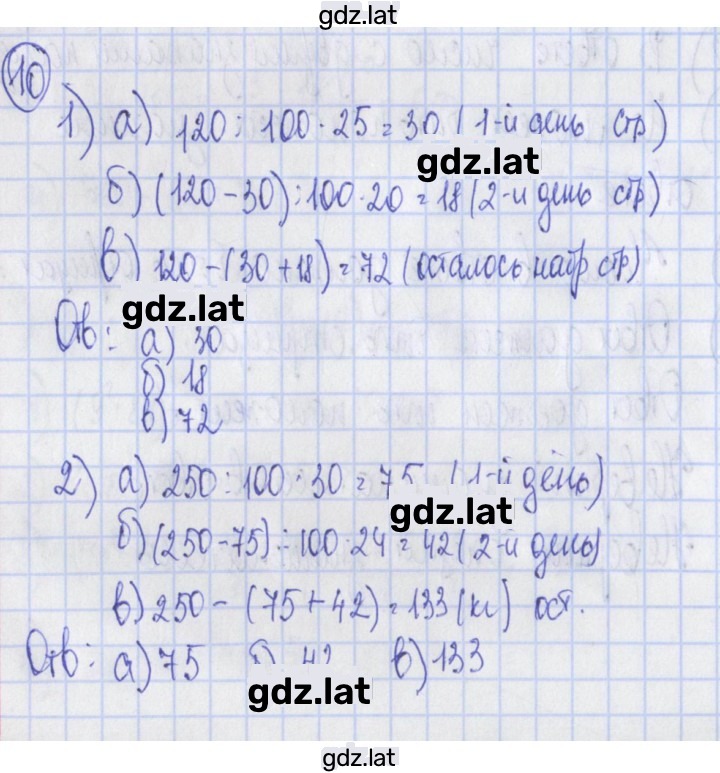 gdz.lat
40
1) а) 120 : 100 · 25 = 30 ( 1-й день стр)
gdz.lat
б) (120 - 30) : 100 · 20 = 18 (2-й день стр)
в) 120 - (30 + 18) = 72 (осталось напр стр)
gdz.lat
Отв: а) 30
б) 18
в) 72
2) а) 250 : 100 : 30 = 75 ( 1-й день)
gdz.lat
б) (250 - 75) : 100 · 24 = 42 ( 2-й день)
в) 250 - (75 + 42) = 133 (кг) ост.
Отв: а) 75 б) 42 в) 133
gdz.lat
gdz.lat